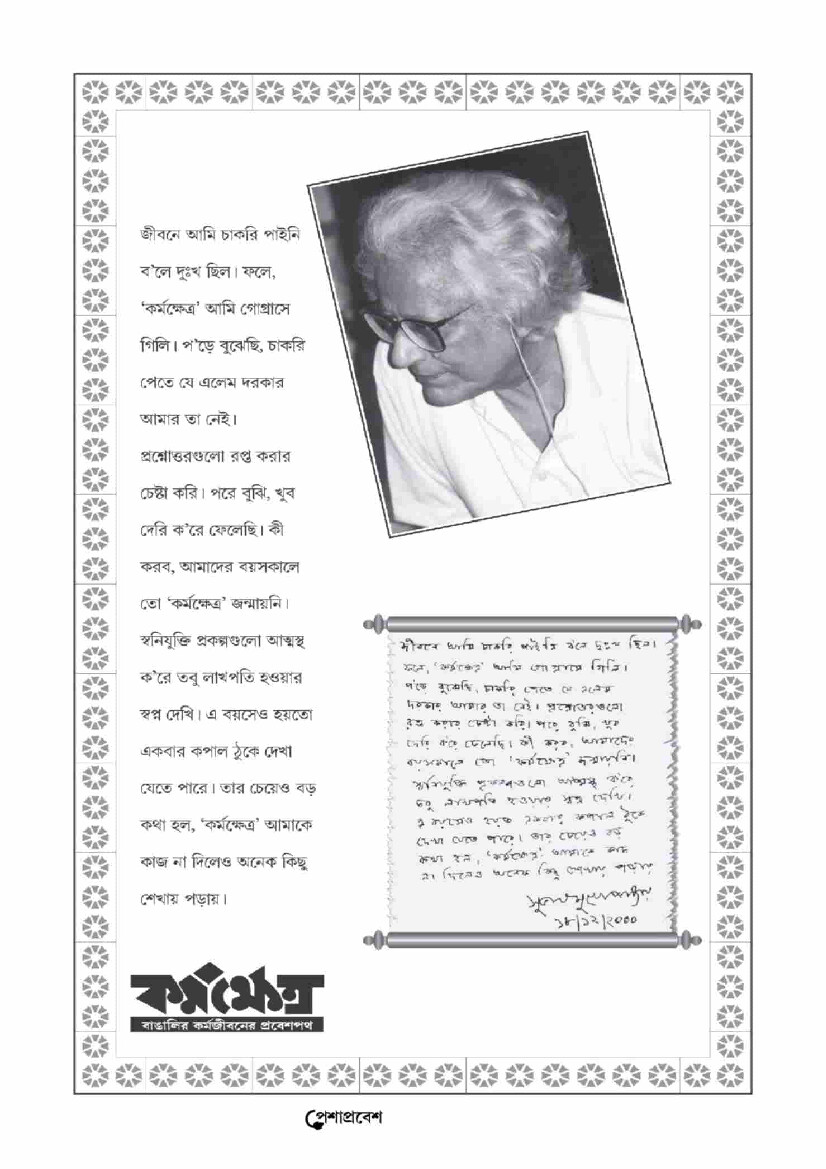 জীবনে আমি চাকরি পাইনি
ব'লে দুঃখ ছিল। ফলে,
'কর্মক্ষেত্র' আমি গোগ্রাসে
গিলি। প'ড়ে বুঝেছি, চাকরি
পেতে যে এলেম দরকার
আমার তা নেই।
প্রশ্নোত্তরগুলো রপ্ত করার
চেষ্টা করি। পরে বুঝি, খুব
দেরি ক'রে ফেলেছি। কী
করব, আমাদের বয়সকালে
তো 'কর্মক্ষেত্র' জন্মায়নি।
স্বনিযুক্তি প্রকল্পগুলো আত্মস্থ
ক'রে তবু লাখপতি হওয়ার
স্বপ্ন দেখি। এ বয়সেও হয়তো
একবার কপাল ঠুকে দেখা
যেতে পারে। তার চেয়েও বড়
কথা হল, 'কর্মক্ষেত্র' আমাকে
কাজ না দিলেও অনেক কিছু
শেখায় পড়ায়।
জীবনে আমি চাকরি পাইনি ব'লে দুঃখ ছিল।
ফলে, 'কর্মক্ষেত্র' আমি গোগ্রাসে গিলি।
প'ড়ে বুঝেছি, চাকরি পেতে যে এলেম
দরকার আমার তা নেই। প্রশ্নোত্তরগুলো
রপ্ত করার চেষ্টা করি। পরে বুঝি, খুব
দেরি ক'রে ফেলেছি। কী করব, আমাদের
বয়সকালে তো 'কর্মক্ষেত্র' জন্মায়নি।
স্বনিযুক্তি প্রকল্পগুলো আত্মস্থ ক'রে
তবু লাখপতি হওয়ার স্বপ্ন দেখি।
এ বয়সেও হয়ত একবার কপাল ঠুকে
দেখা যেতে পারে। তার চেয়েও বড়
কথা হল, 'কর্মক্ষেত্র' আমাকে কাজ
না দিলেও অনেক কিছু শেখায় পড়ায়
সুভাষ মুখোপাধ্যায়
১৪/১২/২০০০
কর্মক্ষেত্র
বাঙালির কর্মজীবনের প্রবেশপথ
পেশাপ্রবেশ